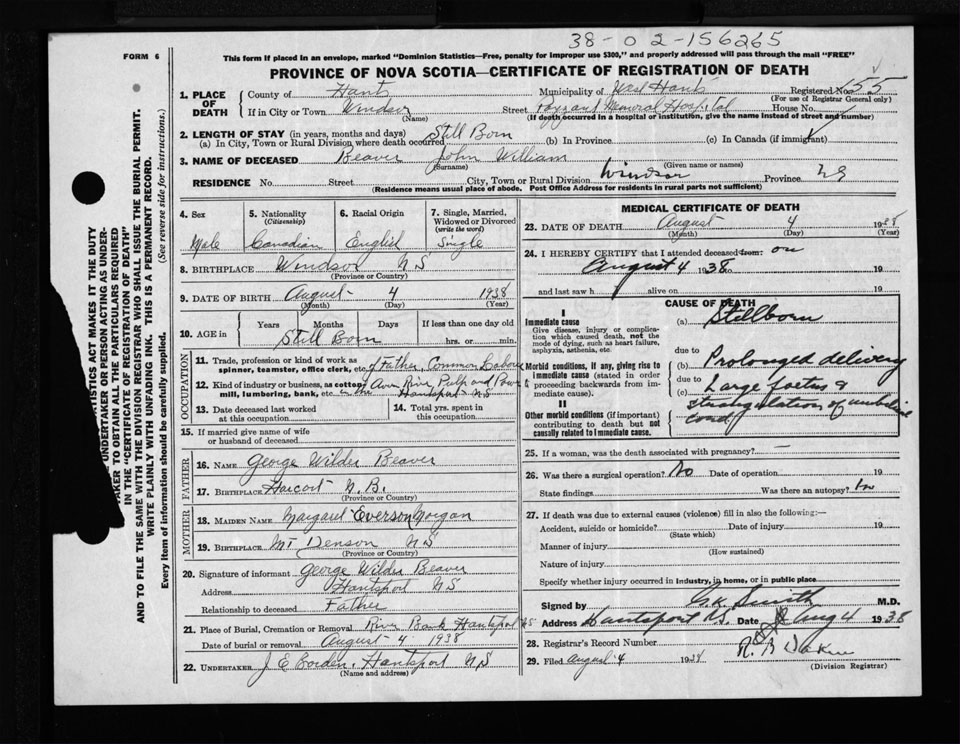 38-02-156265
FORM 6
This form if placed in an envelope, marked "Dominion Statistics—Free, penalty for improper use $300," and properly addressed will pass through the mail "FREE"
PROVINCE OF NOVA SCOTIA—CERTIFICATE OF REGISTRATION OF DEATH
1. PLACE OF DEATH
County of Hants Municipality of West Hants Registered No. 155
(For use of Registrar General only)
If in City or Town Windsor Street Payzant Memorial Hospital House No.
(Name) (If death occurred in a hospital or institution, give the name instead of street and number)
2. LENGTH OF STAY (in years, months and days)
(a) In City, Town or Rural Division where death occurred Still Born (b) In Province (c) In Canada (if immigrant)
3. NAME OF DECEASED Beaver John William
(Surname) (Given name or names)
RESIDENCE No. Street City, Town or Rural Division Windsor Province N S
(Residence means usual place of abode. Post Office Address for residents in rural parts not sufficient)
4. Sex 5. Nationality (Citizenship) 6. Racial Origin 7. Single, Married, Widowed or Divorced (write the word)
Male Canadian English Single
8. BIRTHPLACE Windsor N S
(Province or Country)
9. DATE OF BIRTH August 4 1938
(Month) (Day) (Year)
10. AGE in Years Months Days If less than one day old
Still Born hrs. or min.
OCCUPATION
11. Trade, profession or kind of work as spinner, teamster, office clerk, etc. Father Common Labour
12. Kind of industry or business, as cotton mill, lumbering, bank, etc. Avon River Pulp and Power Hantsport N S
13. Date deceased last worked at this occupation
14. Total yrs. spent in this occupation
15. If married give name of wife or husband of deceased
FATHER
16. NAME George Wilder Beaver
17. BIRTHPLACE Harcort N.B.
(Province or Country)
MOTHER
18. MAIDEN NAME Margaret Everson Morgan
19. BIRTHPLACE Mt Denson N S
(Province or Country)
20. Signature of informant George Wilder Beaver
Address Hantsport N S
Relationship to deceased Father
21. Place of Burial, Cremation or Removal River Bank Hantsport NS
Date of burial or removal August 4 1938
22. UNDERTAKER J E Borden, Hantsport N S
(Name and address)
MEDICAL CERTIFICATE OF DEATH
23. DATE OF DEATH August 4 1938
(Month) (Day) (Year)
24. I HEREBY CERTIFY that I attended deceased from: on
August 4 1938 to 19
and last saw h alive on 19
CAUSE OF DEATH
I
Immediate cause
Give disease, injury or complication which caused death, not the mode of dying, such as heart failure, asphyxia, asthenia, etc.
(a) Stillborn
due to
Morbid conditions, if any, giving rise to immediate cause (stated in order of proceeding backwards from immediate cause).
(b) Prolonged delivery
due to
(c) Large foetus &
strangulation of umbilical
cord
II
Other morbid conditions (if important) contributing to death but not causally related to immediate cause.
25. If a woman, was the death associated with pregnancy?
26. Was there a surgical operation? No Date of operation 19
State findings Was there an autopsy? No
27. If death was due to external causes (violence) fill in also the following:—
Accident, suicide or homicide? Date of injury 19
(State which)
Manner of injury
(How sustained)
Nature of injury
Specify whether injury occurred in industry, in home, or in public place
Signed by Smith M.D.
Address Hantsport N.S. Date Aug 4 1938
28. Registrar's Record Number
29. Filed August 4 1938
(Division Registrar)
AND TO FILE THE SAME WITH THE DIVISION REGISTRAR WHO SHALL ISSUE THE BURIAL PERMIT.
WRITE PLAINLY WITH UNFADING INK. THIS IS A PERMANENT RECORD.
Every item of information should be carefully supplied. (See reverse side for instructions.)
TISTICS ACT MAKES IT THE DUTY
UNDERTAKER OR PERSON ACTING AS UNDER-
TAKER TO OBTAIN ALL THE PARTICULARS REQUIRED
IN THE "CERTIFICATE OF REGISTRATION OF DEATH"